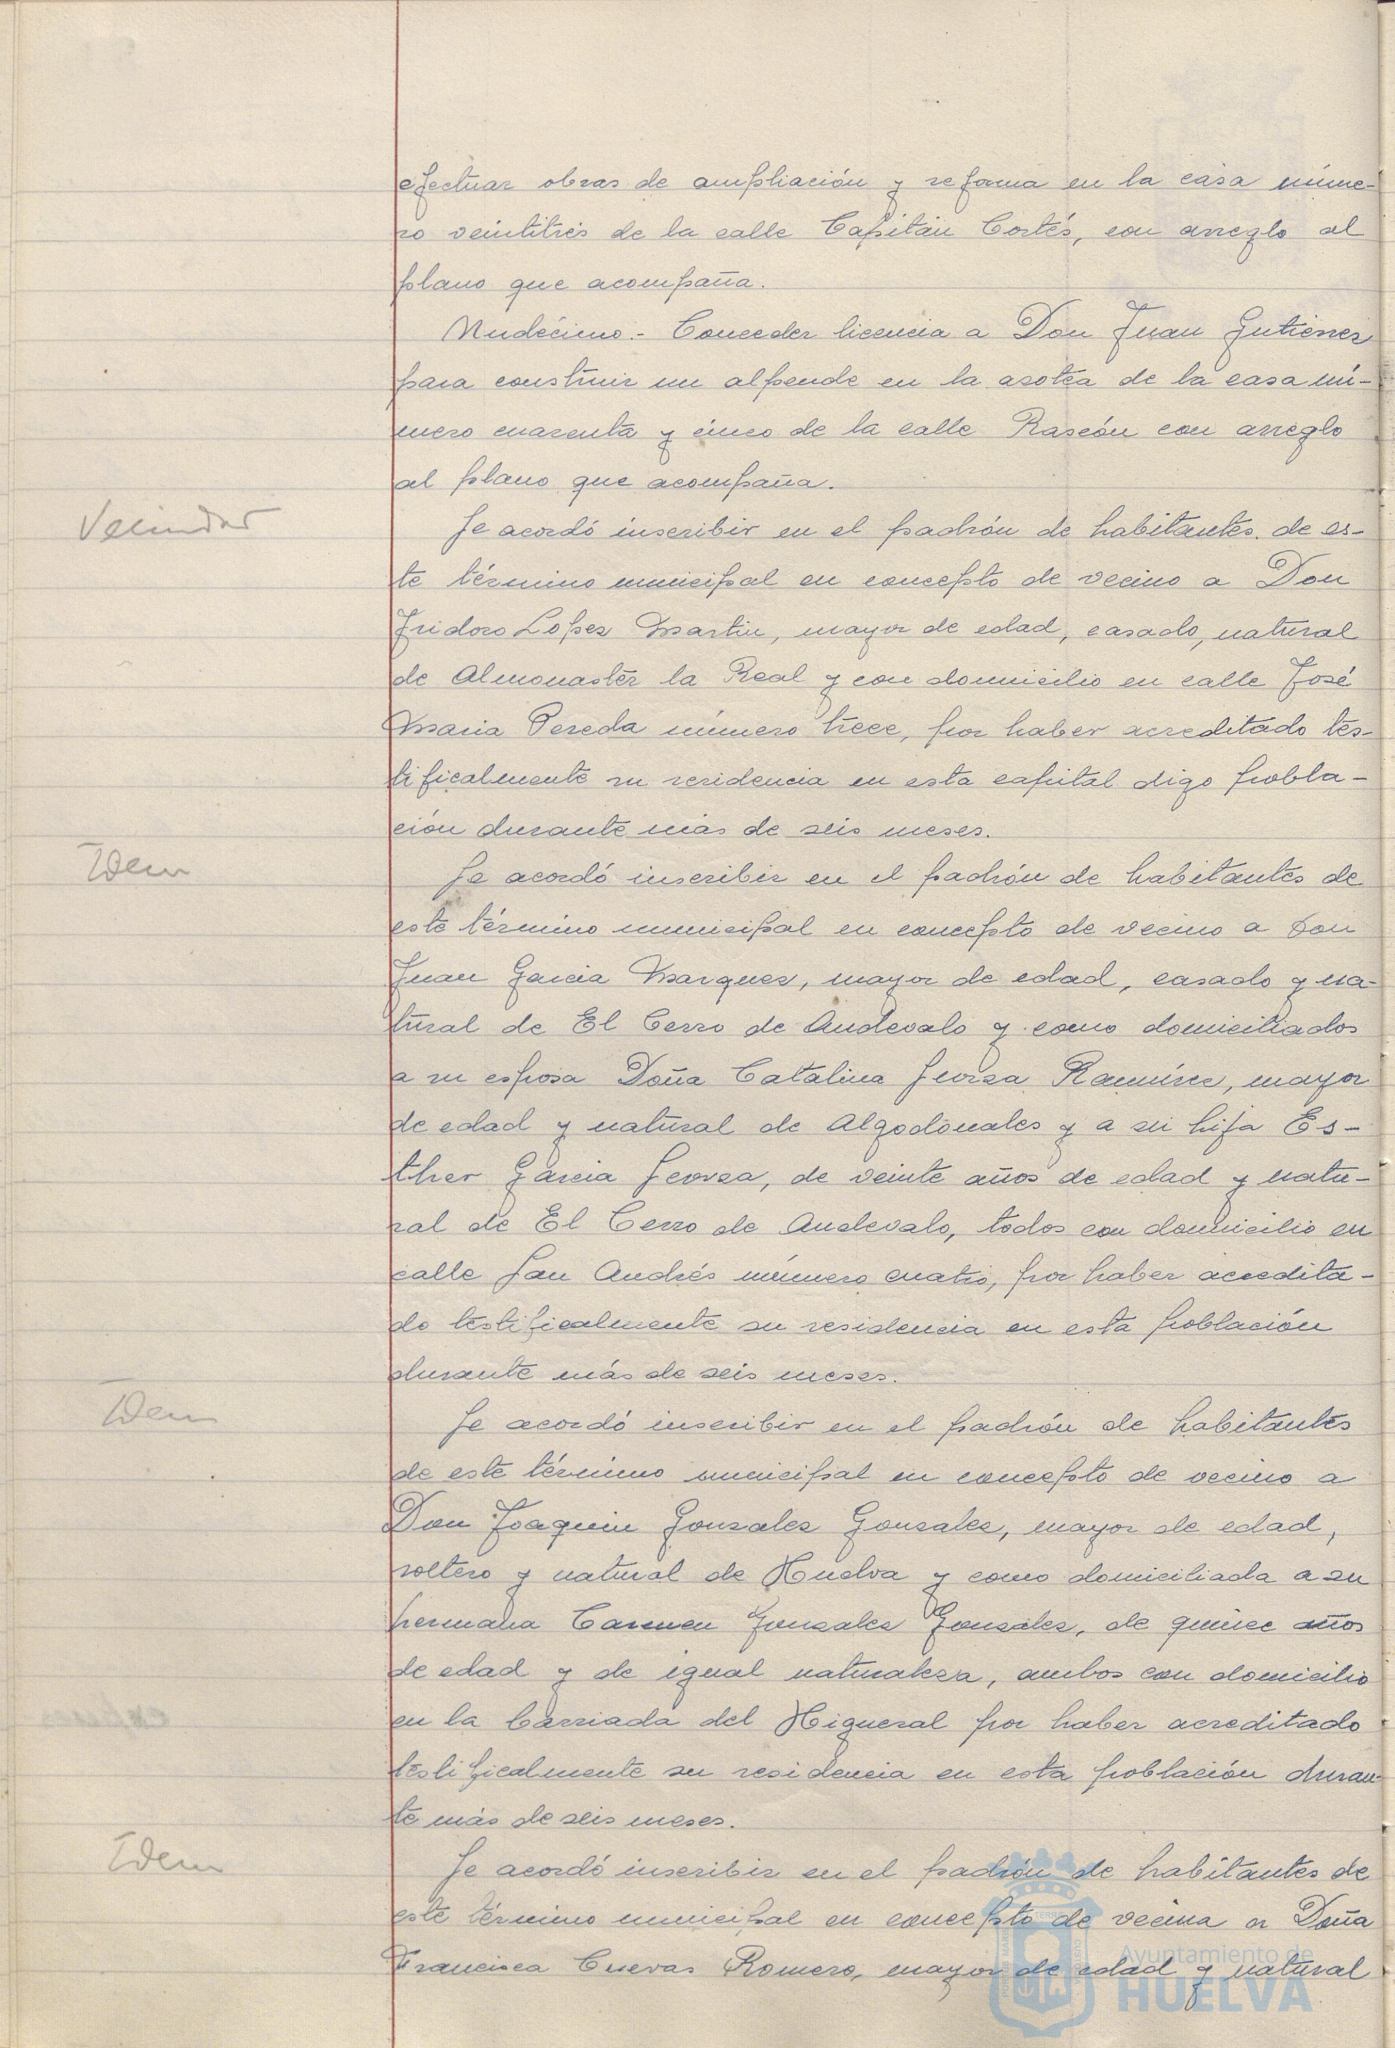 efectuar obras de ampliación y reforma en la casa núme-
ro veintitrés de la calle Capitán Cortés, con arreglo al
plano que acompaña.
Undécimo.- Conceder licencia a Don Juan Gutierrez
para construir un alpende en la azotea de la casa nú-
mero cuarenta y cinco de la calle Rascón con arreglo
al plano que acompaña.
Vecindad
Se acordó inscribir en el padrón de habitantes de es-
te término municipal en concepto de vecino a Don
Isidoro Lopez Martin, mayor de edad, casado, natural
de Almonaster la Real y con domicilio en calle José
Maria Pereda número trece, por haber acreditado tes-
tificalmente su residencia en esta capital digo pobla-
ción durante más de seis meses.
Idem
Se acordó inscribir en el padrón de habitantes de
este término municipal en concepto de vecino a Don
Juan Garcia Marquez, mayor de edad, casado y na-
tural de El Cerro de Andevalo y como domiciliados
a su esposa Doña Catalina Ramírez, mayor
de edad y natural de Algodonales y a su hija Es-
ther Garcia de veinte años de edad y natu-
ral de El Cerro de Andevalo, todos con domicilio en
calle San Andrés número cuatro, por haber acredita-
do testificalmente su residencia en esta población
durante más de seis meses.
Idem
Se acordó inscribir en el padrón de habitantes
de este término municipal en concepto de vecino a
Don Joaquin Gonzalez Gonzalez, mayor de edad,
soltero y natural de Huelva y como domiciliada a su
hermana Carmen Gonzalez Gonzalez, de quince años
de edad y de igual naturaleza, ambos con domicilio
en la barriada del Higueral por haber acreditado
testificalmente su residencia en esta población duran-
te más de seis meses.
Idem
Se acordó inscribir en el padrón de habitantes de
este término municipal en concepto de vecina a Doña
Francisca Cuevas Romero, mayor de edad y natural
Ayuntamiento de
HUELVA